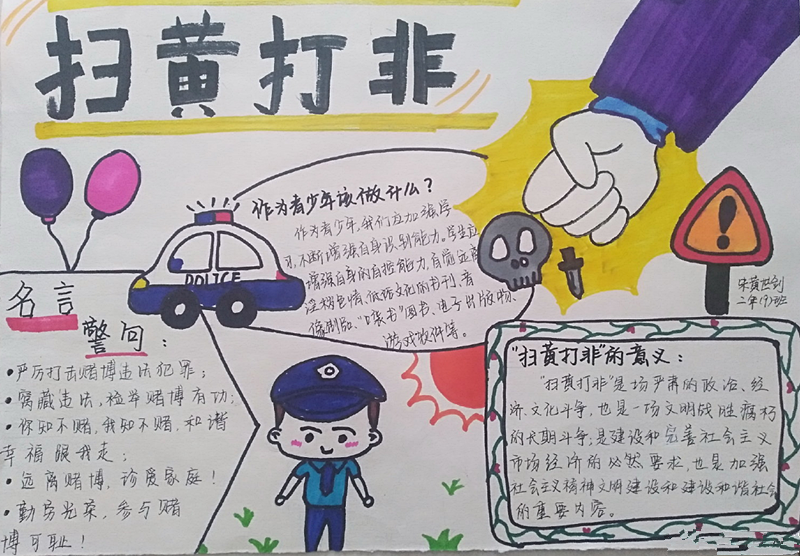 扫黄打非
作为青少年该做什么?
作为青少年,我们应加强学
习,不断增强自身识别能力。学生应
增强自身的自控能力,自觉远离
淫秽色情、低俗文化的书刊、音
像制品、"口袋书"图书、电子出版物、
游戏软件等。
POLICE
名言
警句:
•严厉打击赌博违法犯罪;
•窝藏违法,检举赌博有功;
•你知不赌,我知不赌,和谐
幸福跟我走;
•远离赌博,珍爱家庭!
•勤劳光荣,参与赌
博可耻!
二年(9)班
"扫黄打非"的意义:
"扫黄打非"是场严肃的政治、经
济、文化斗争,也是一场文明战胜腐朽
的长期斗争;是建设和完善社会主义
市场经济的必然要求,也是加强
社会主义精神文明建设和建设和谐社会
的重要内容。